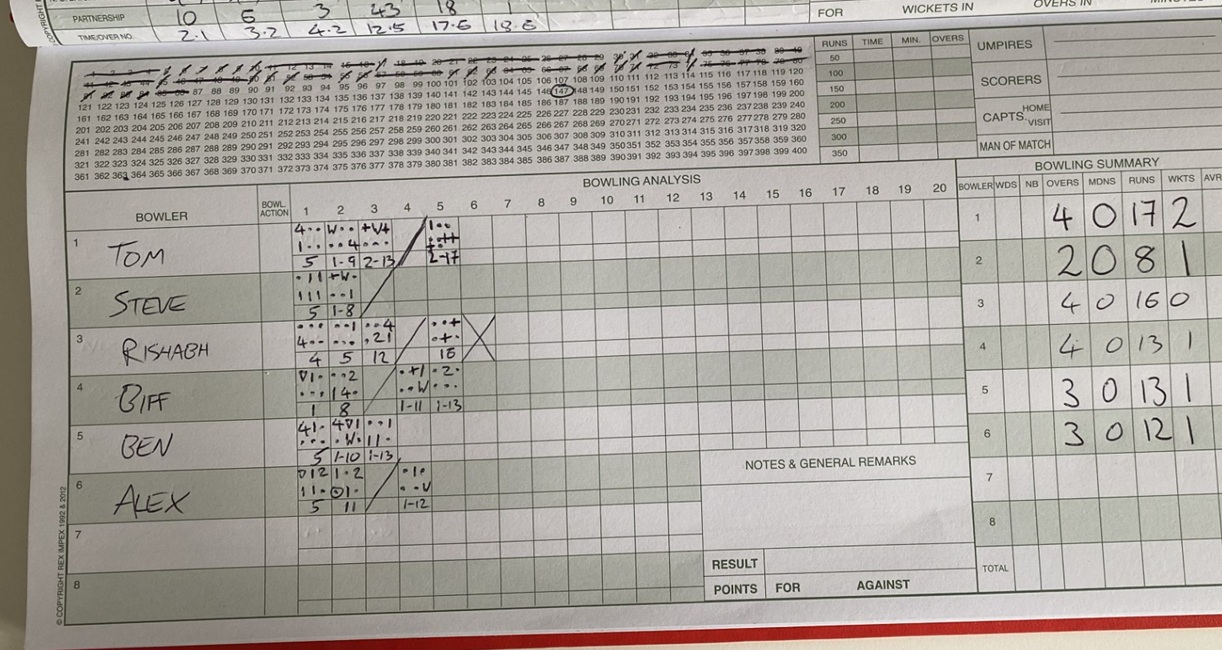 PARTNERSHIP 10 6 3 43 18 1
TIME/OVER NO. 2.1 3.2 4.2 12.5 17.6 18.6
FOR WICKETS IN OVERS IN
RUNS TIME MIN. OVERS
50
100
150
200
250
300
350
UMPIRES
SCORERS
CAPTS. HOME
VISIT
MAN OF MATCH
87 88 89 90 91 92 93 94 95 96 97 98 99 100 101 102 103 104 105 106 107 108 109 110 111 112 113 114 115 116 117 118 119 120
121 122 123 124 125 126 127 128 129 130 131 132 133 134 135 136 137 138 139 140 141 142 143 144 145 146 147 148 149 150 151 152 153 154 155 156 157 158 159 160
161 162 163 164 165 166 167 168 169 170 171 172 173 174 175 176 177 178 179 180 181 182 183 184 185 186 187 188 189 190 191 192 193 194 195 196 197 198 199 200
201 202 203 204 205 206 207 208 209 210 211 212 213 214 215 216 217 218 219 220 221 222 223 224 225 226 227 228 229 230 231 232 233 234 235 236 237 238 239 240
241 242 243 244 245 246 247 248 249 250 251 252 253 254 255 256 257 258 259 260 261 262 263 264 265 266 267 268 269 270 271 272 273 274 275 276 277 278 279 280
281 282 283 284 285 286 287 288 289 290 291 292 293 294 295 296 297 298 299 300 301 302 303 304 305 306 307 308 309 310 311 312 313 314 315 316 317 318 319 320
321 322 323 324 325 326 327 328 329 330 331 332 333 334 335 336 337 338 339 340 341 342 343 344 345 346 347 348 349 350 351 352 353 354 355 356 357 358 359 360
361 362 363 364 365 366 367 368 369 370 371 372 373 374 375 376 377 378 379 380 381 382 383 384 385 386 387 388 389 390 391 392 393 394 395 396 397 398 399 400
BOWLING ANALYSIS
BOWLER BOWL. ACTION 1 2 3 4 5 6 7 8 9 10 11 12 13 14 15 16 17 18 19 20
1 TOM 5 1-9 2-13 2-17
2 STEVE 5 1-8
3 RISHABH 4 5 12 16
4 BIFF 1 8 1-11 1-13
5 BEN 5 1-10 1-13
6 ALEX 5 11 1-12
7
8
BOWLING SUMMARY
BOWLER WDS NB OVERS MDNS RUNS WKTS AVR
1 4 0 17 2
2 2 0 8 1
3 4 0 16 0
4 4 0 13 1
5 3 0 13 1
6 3 0 12 1
7
8
TOTAL
NOTES & GENERAL REMARKS
RESULT
POINTS FOR AGAINST
© COPYRIGHT REX IMPEX 1992 & 2012